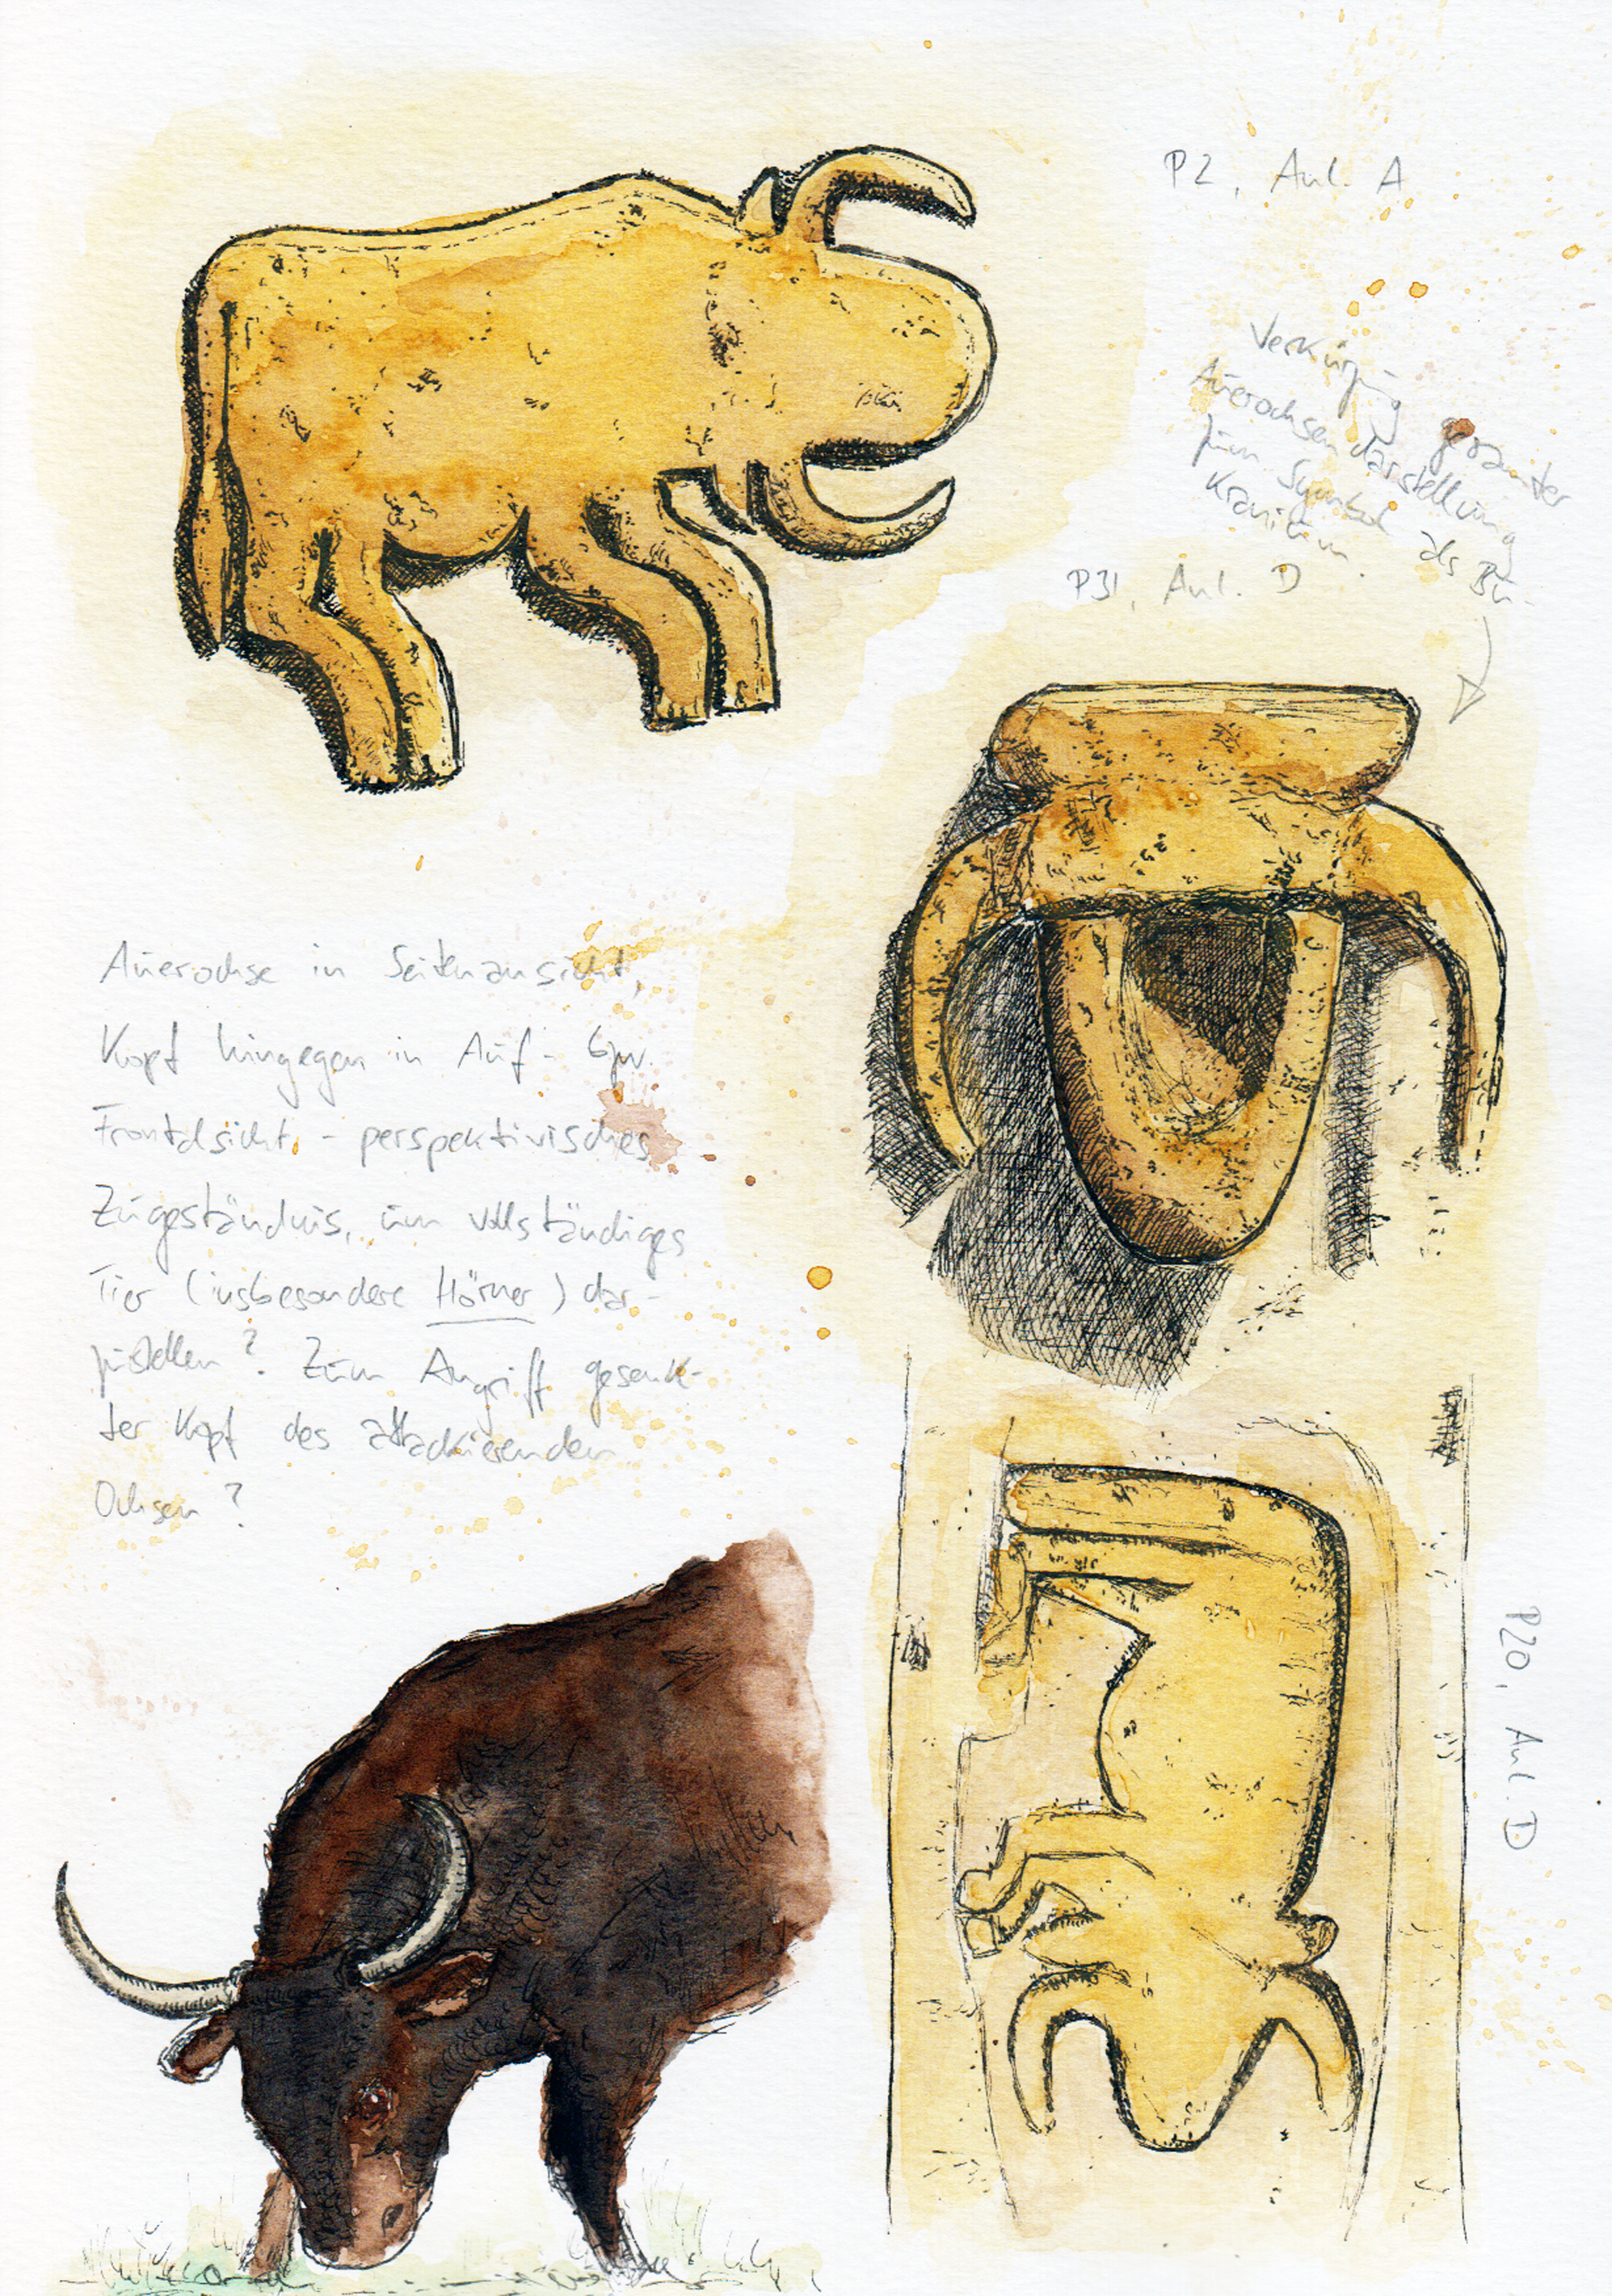 P2, Anl. A
Verkürzung gesamter
Auerochsendarstellung
zum Symbol als Bu-
kranium.
P31, Anl. D
Auerochse in Seitenansicht,
Kopf hingegen in Auf- bzw.
Frontalsicht - perspektivisches
Zugeständnis, um vollständiges
Tier (insbesondere Hörner) dar-
zustellen? Zum Angriff gesenk-
ter Kopf des attackierenden
Ochsen?
P20, Anl. D